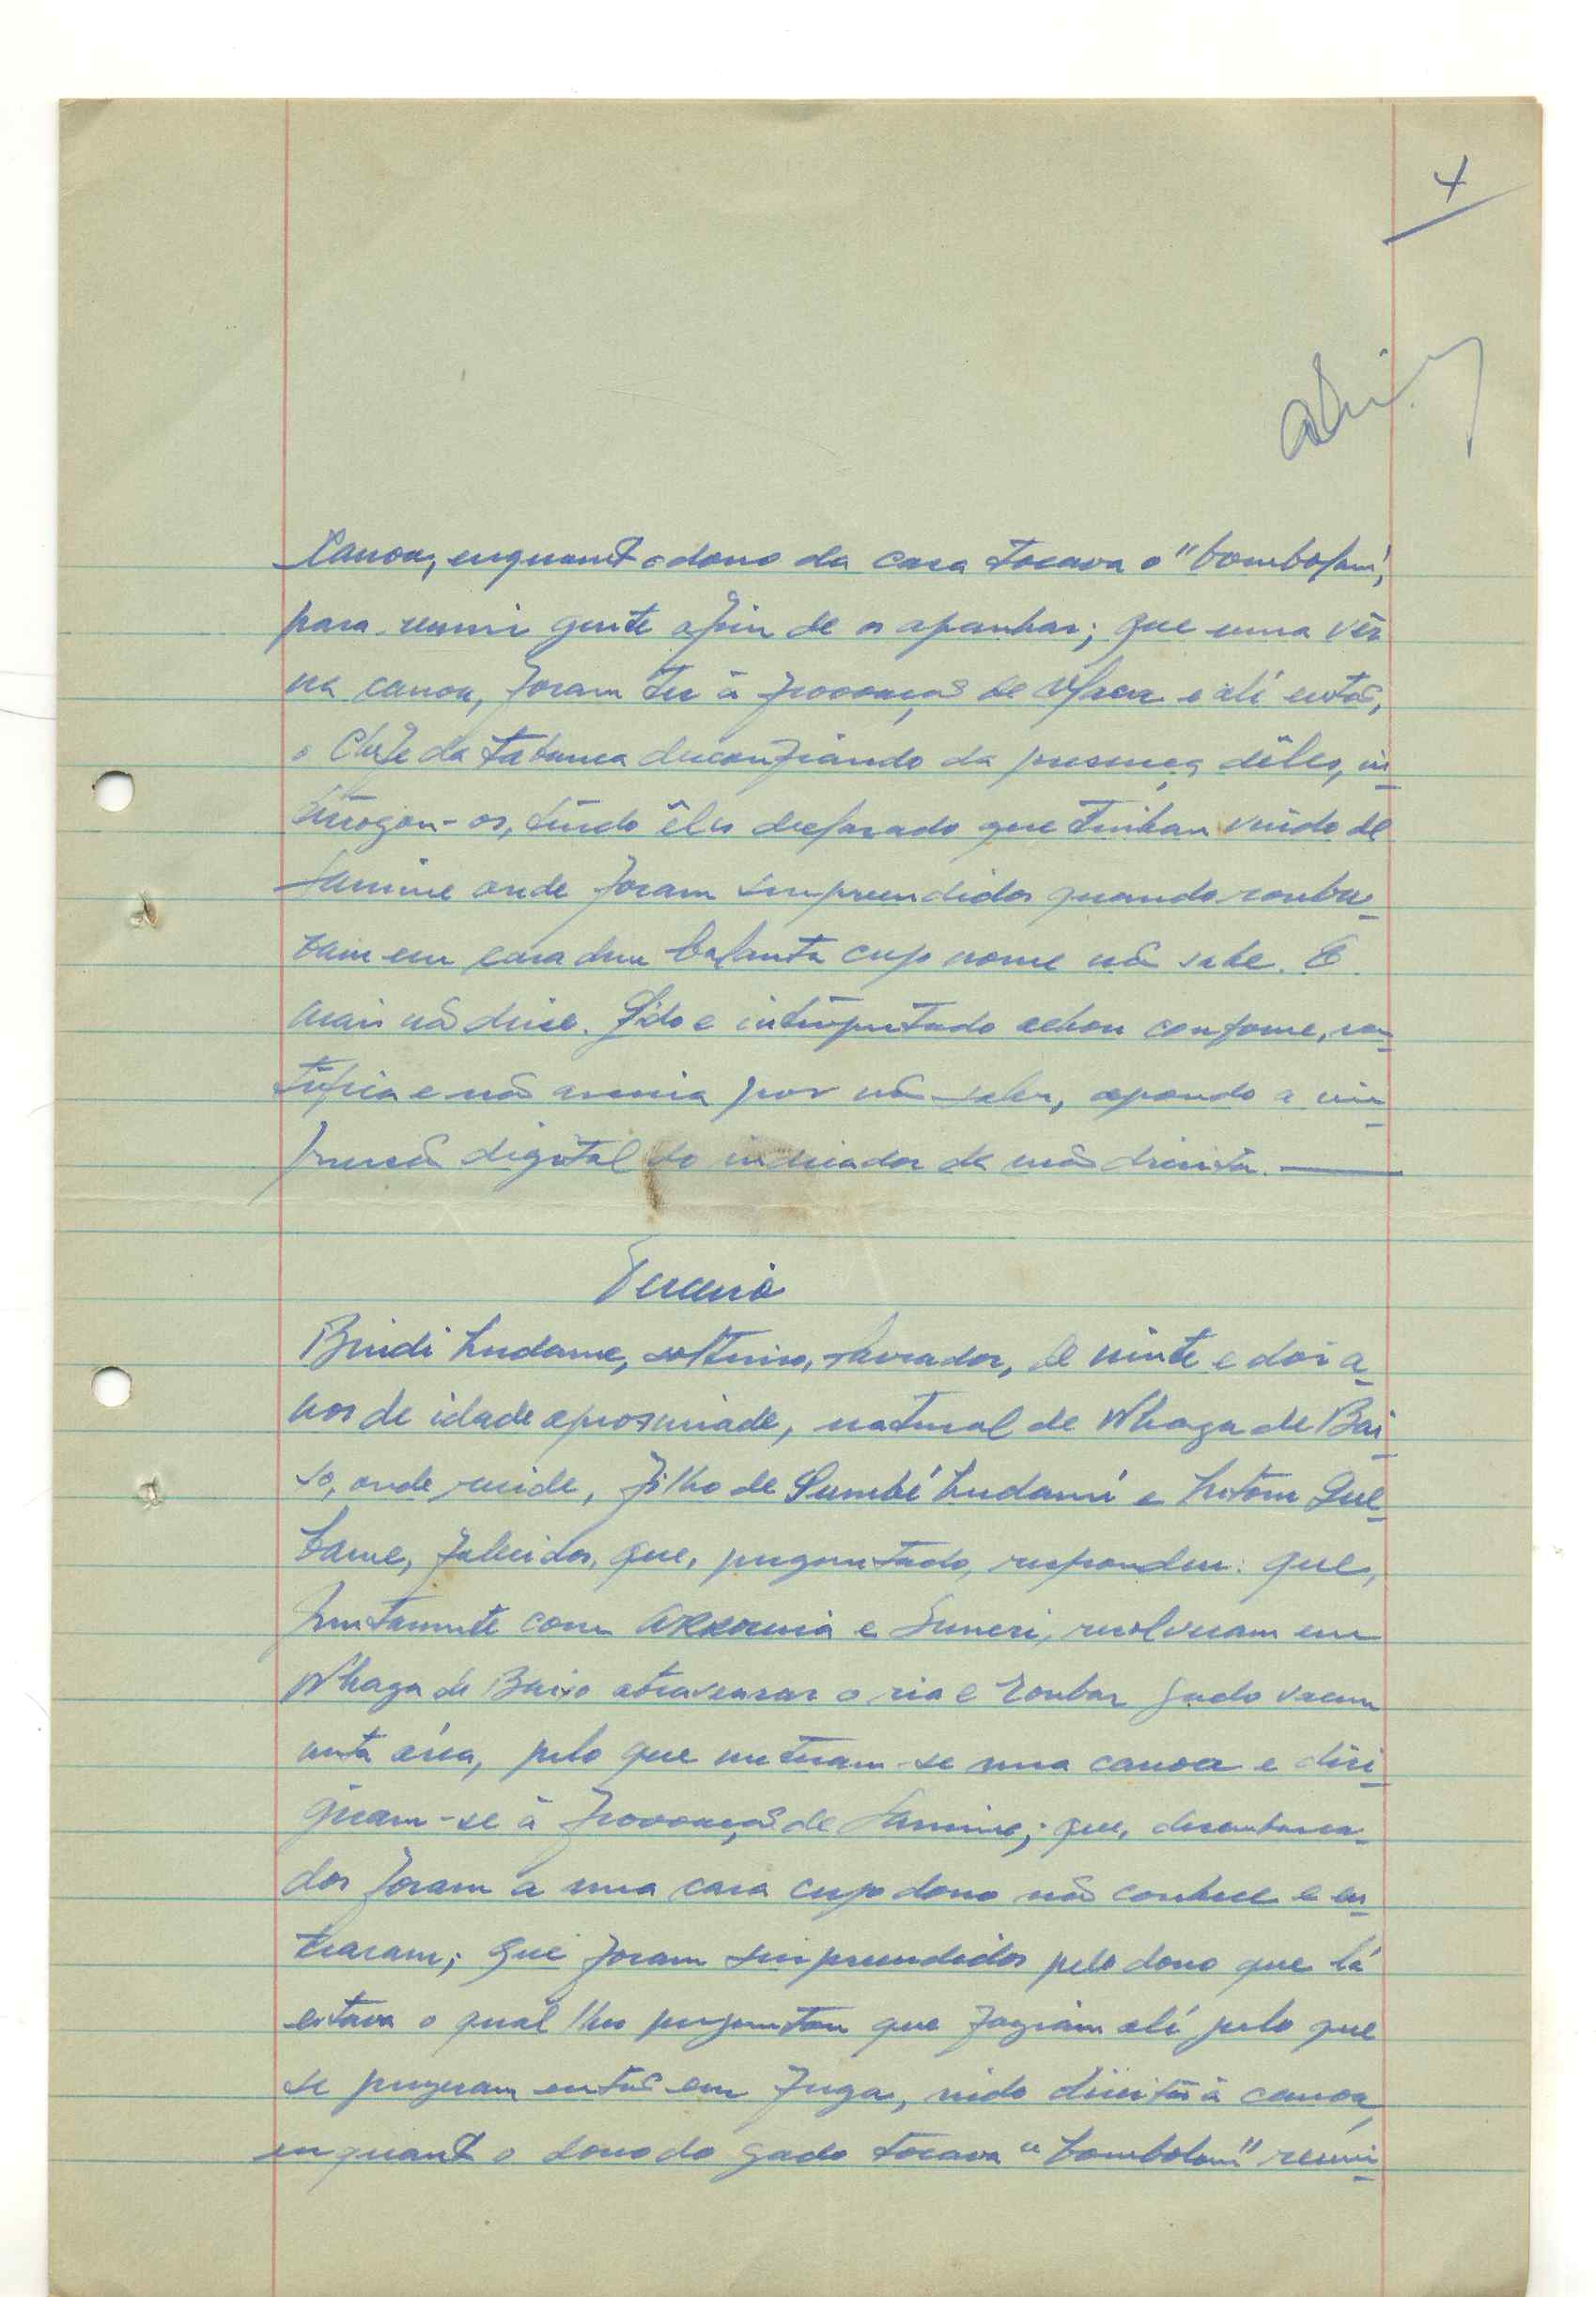 4
canoa, enquanto o dono da casa tocava o "bombolom",
para reunir gente afim de os apanhar; que uma vês
na canoa, foram ter à povoação de e ali então,
o Chefe da tabanca desconfiando da presença dêles, in-
terrogou-os, tendo êles declarado que tinham vindo de
Jamine onde foram surpreendidos quando rouba-
vam em casa dum balanta cujo nome não sabe. E
mais não disse. Lido e interpretado achou conforme, ra-
tifica e não assina por não saber, apondo a im-
pressão digital do indicador da mão direita.
Terceiro
Bindi Lndame, solteiro, lavrador, de vinte e dois a-
nos de idade aproximada, natural de Nhaga de Bai-
xo, onde reside, filho de Sumbé Lndamé e Que-
bame, falecidos, que, perguntado, respondeu: que,
juntamente com e Sumeri, resolveram em
Nhaga de Baixo atravessar o rio e roubar gado vacum
nesta área, pelo que meteram-se numa canoa e diri-
giram-se à povoação de Jamine; que, desembarca-
dos foram a uma casa cujo dono não conhece e en-
traram; que foram surpreendidos pelo dono que lá
estava o qual lhes perguntou que faziam ali pelo que
se puzeram então em fuga, indo direitos à canoa,
enquanto o dono do gado tocava "bombolom" reuni-